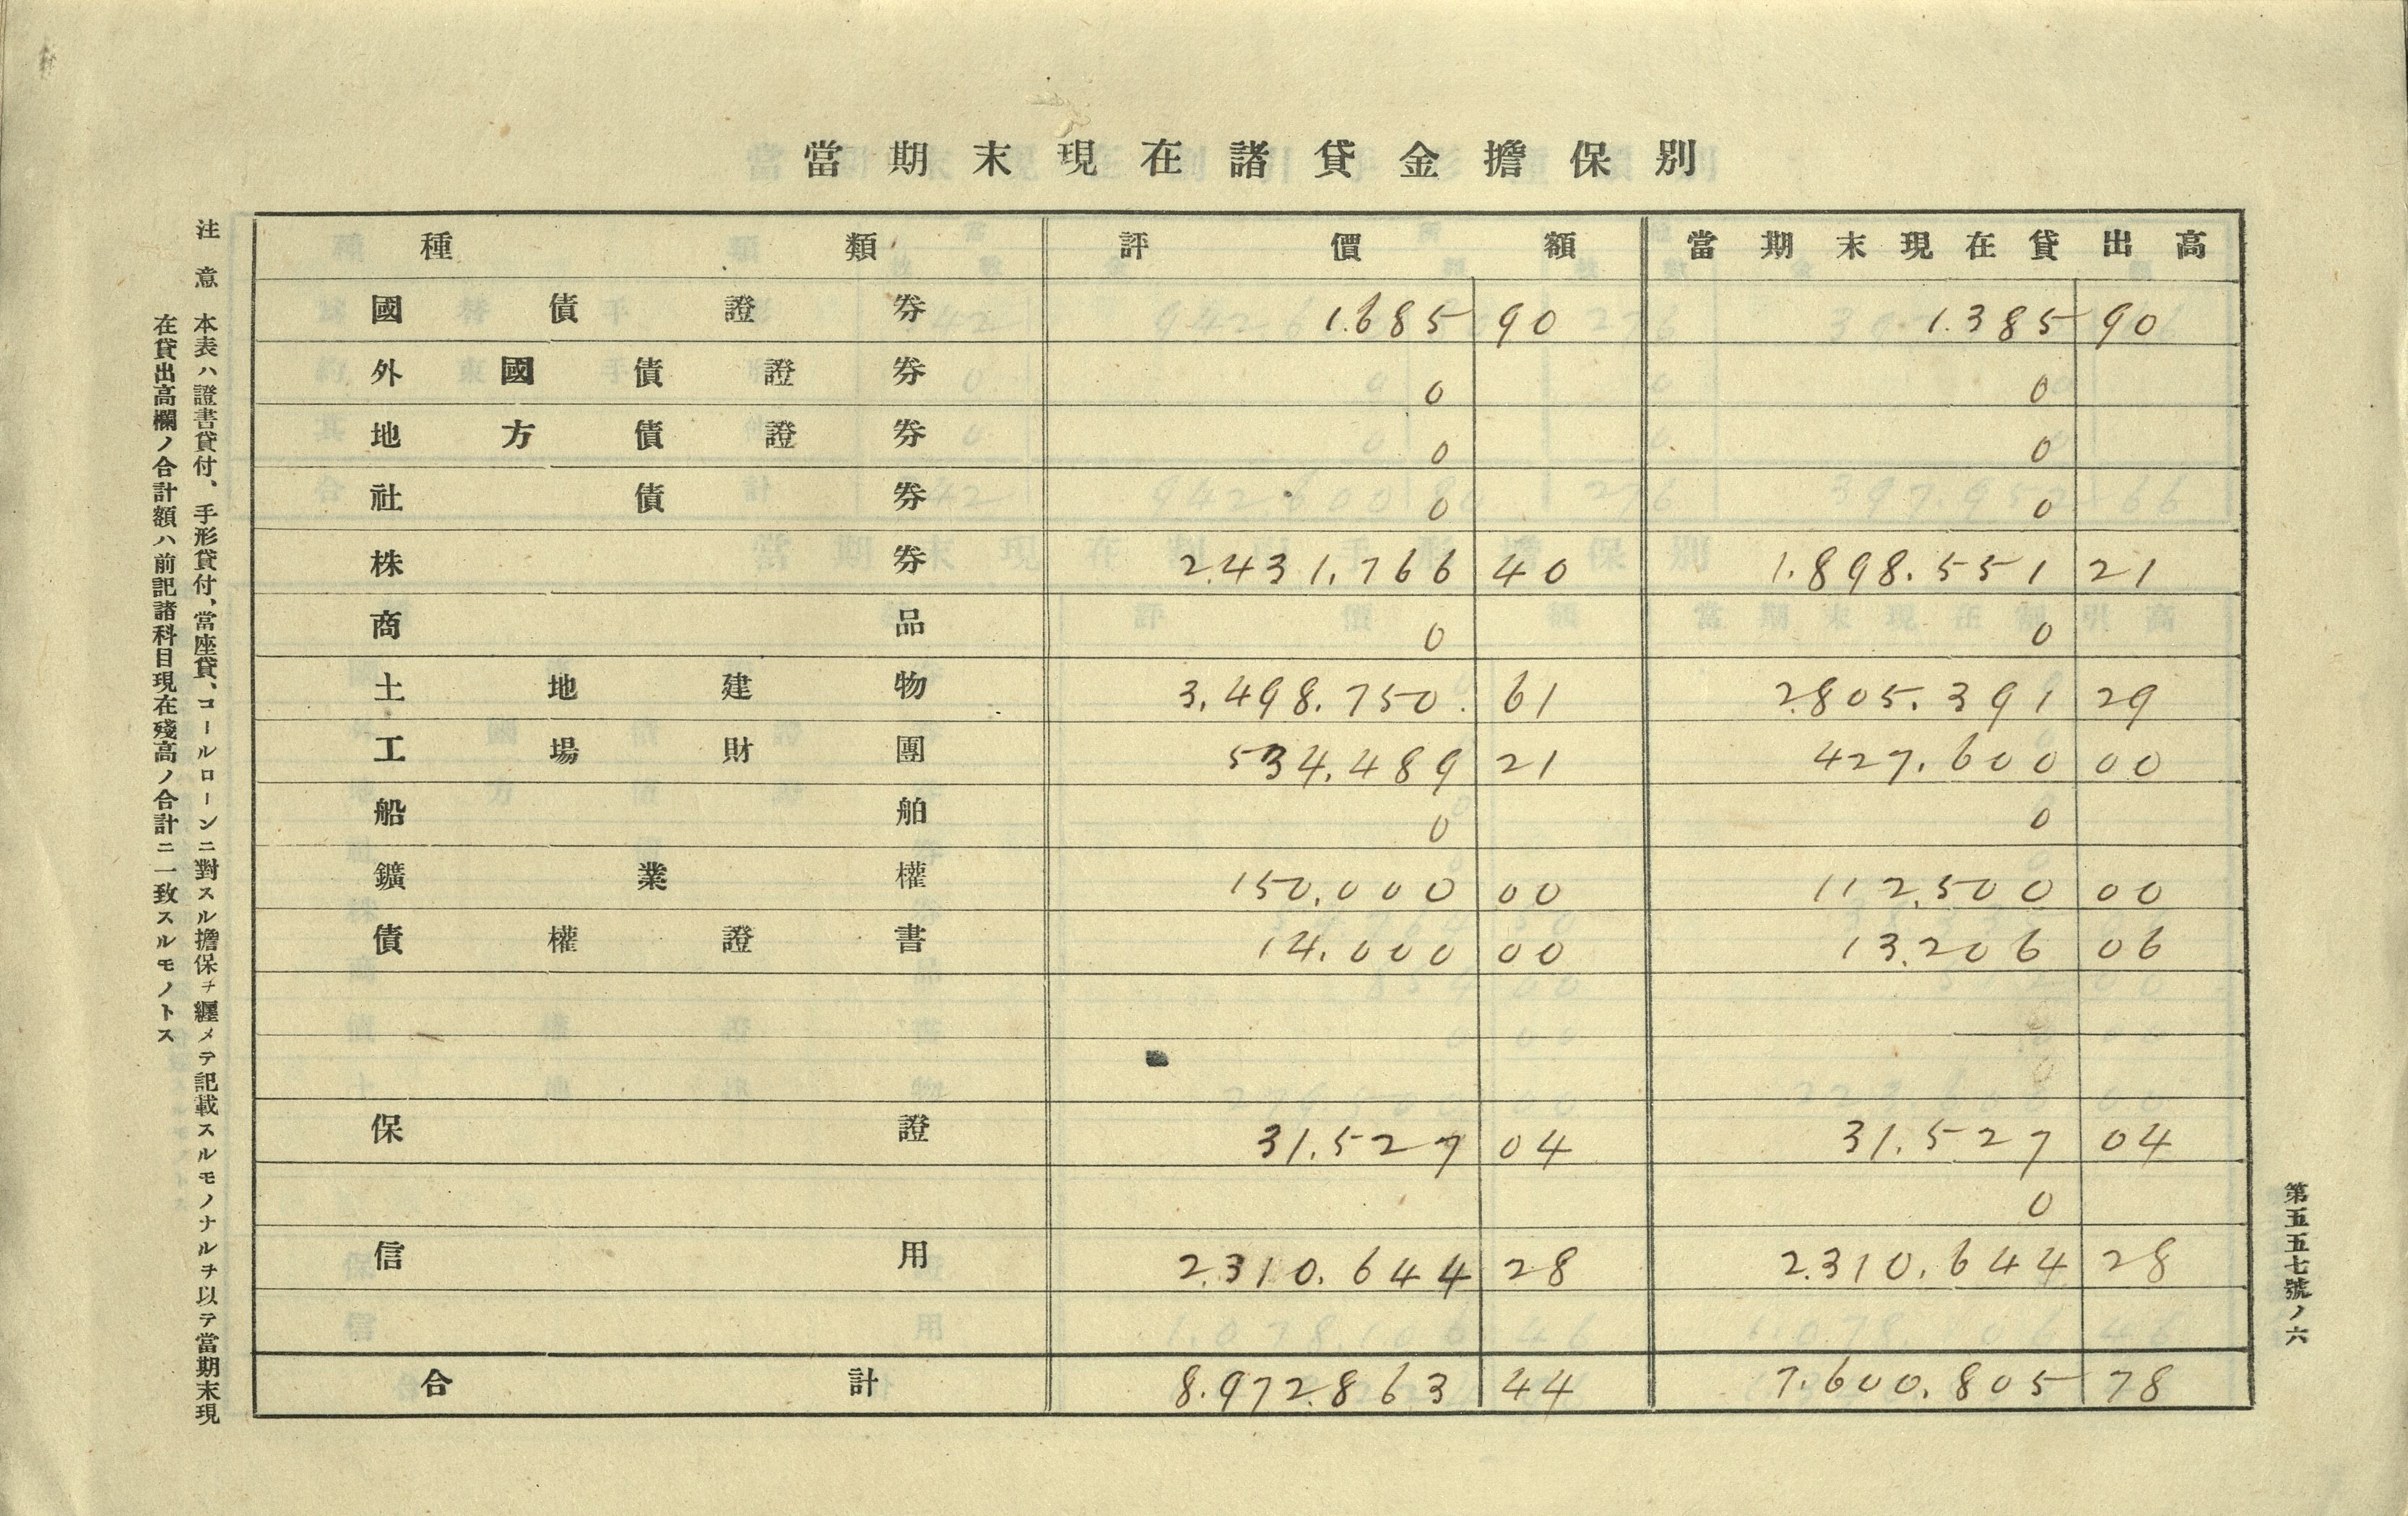 當期末現在諸貸金擔保別
種類 評價額 當期末現在貸出高
國債證券 1.685 90 1.385 90
外國債證券 0 0
地方債證券 0 0
社債券 0 0
株券 2.431.766 40 1.898.551 21
商品 0 0
土地建物 3.498.750. 61 2.805.391 29
工場財團 534.489 21 427.600 00
船舶 0 0
鑛業權 150.000 00 112.500 00
債權證書 14.000 00 13.206 06
保證 31.527 04 31.527 04
0
信用 2.310.644 28 2.310.644 28
合計 8.972.863 44 7.600.805 78
第五五七號ノ六
注意 本表ハ證書貸付、手形貸付、當座貸、コールローンニ對スル擔保ヲ纒メテ記載スルモノナルヲ以テ當期末現
在貸出高欄ノ合計額ハ前記諸科目現在殘高ノ合計ニ一致スルモノトス